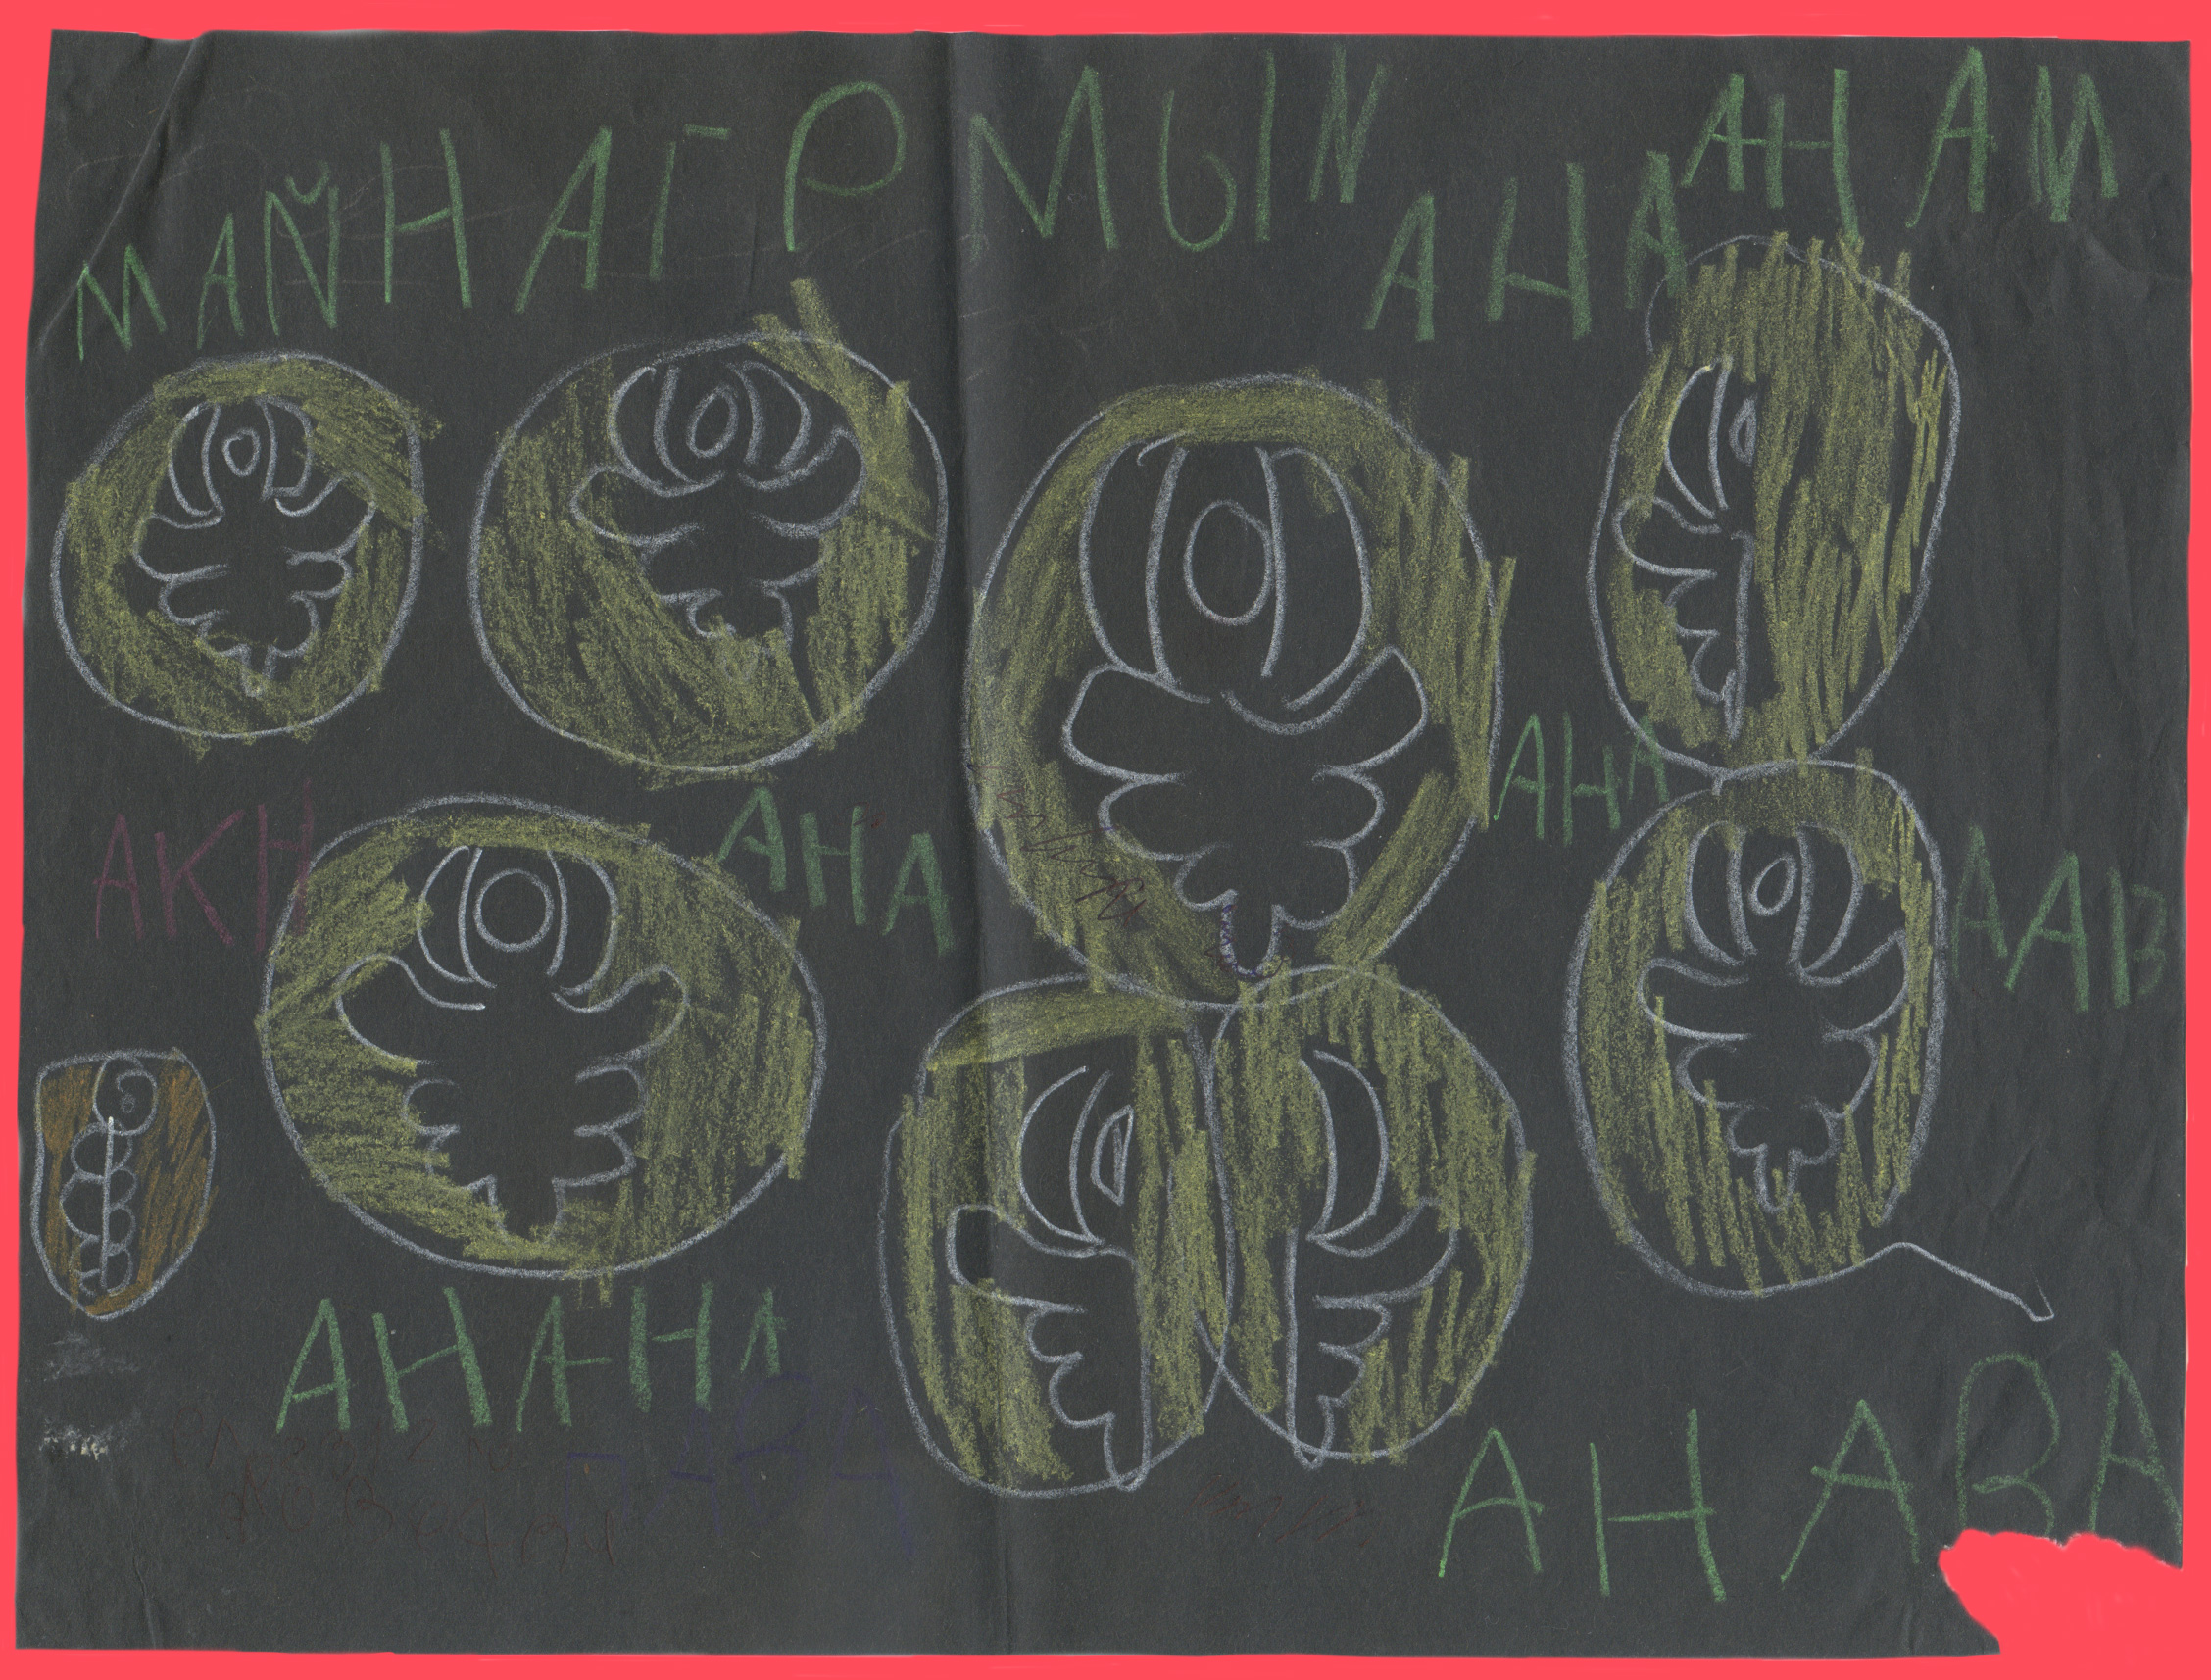 МАЙНАГРМЫИ
АНА
АНАМ
АКН
АНА
АНА
ААВ
АНАНА
АНАВА